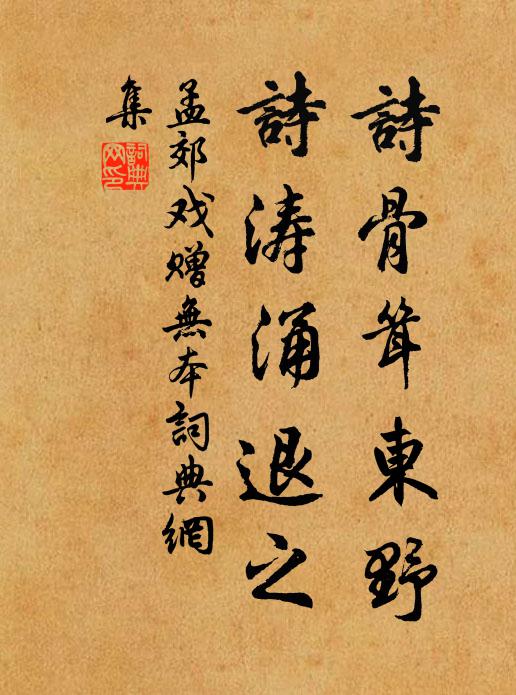 詩骨耸東野
詩涛涌退之
孟郊戏赠無本詞典網
集
詞典
网印